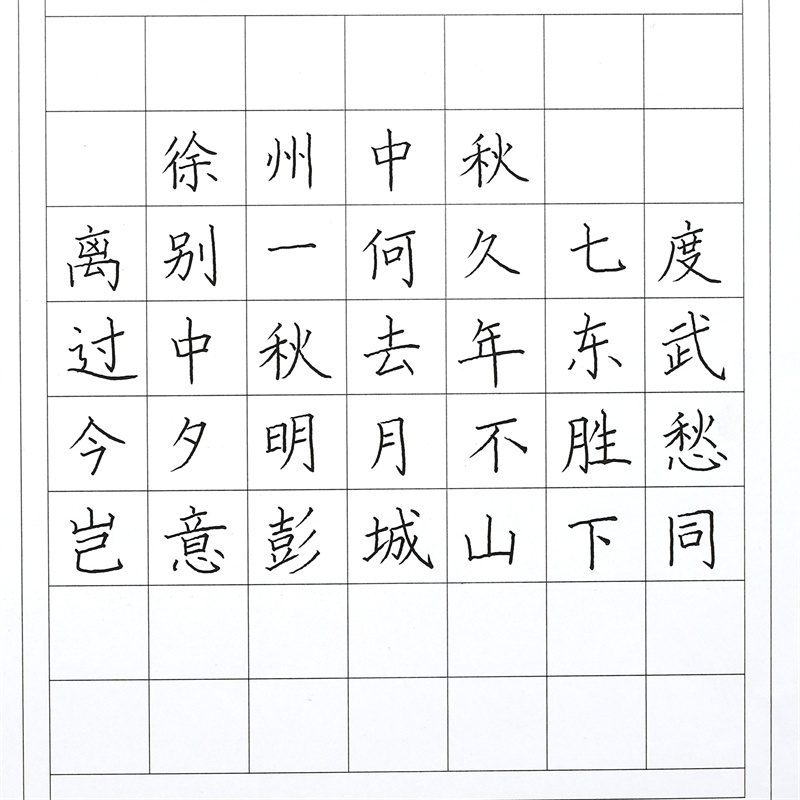 徐州中秋
离别一何久七度
过中秋去年东武
今夕明月不胜愁
岂意彭城山下同